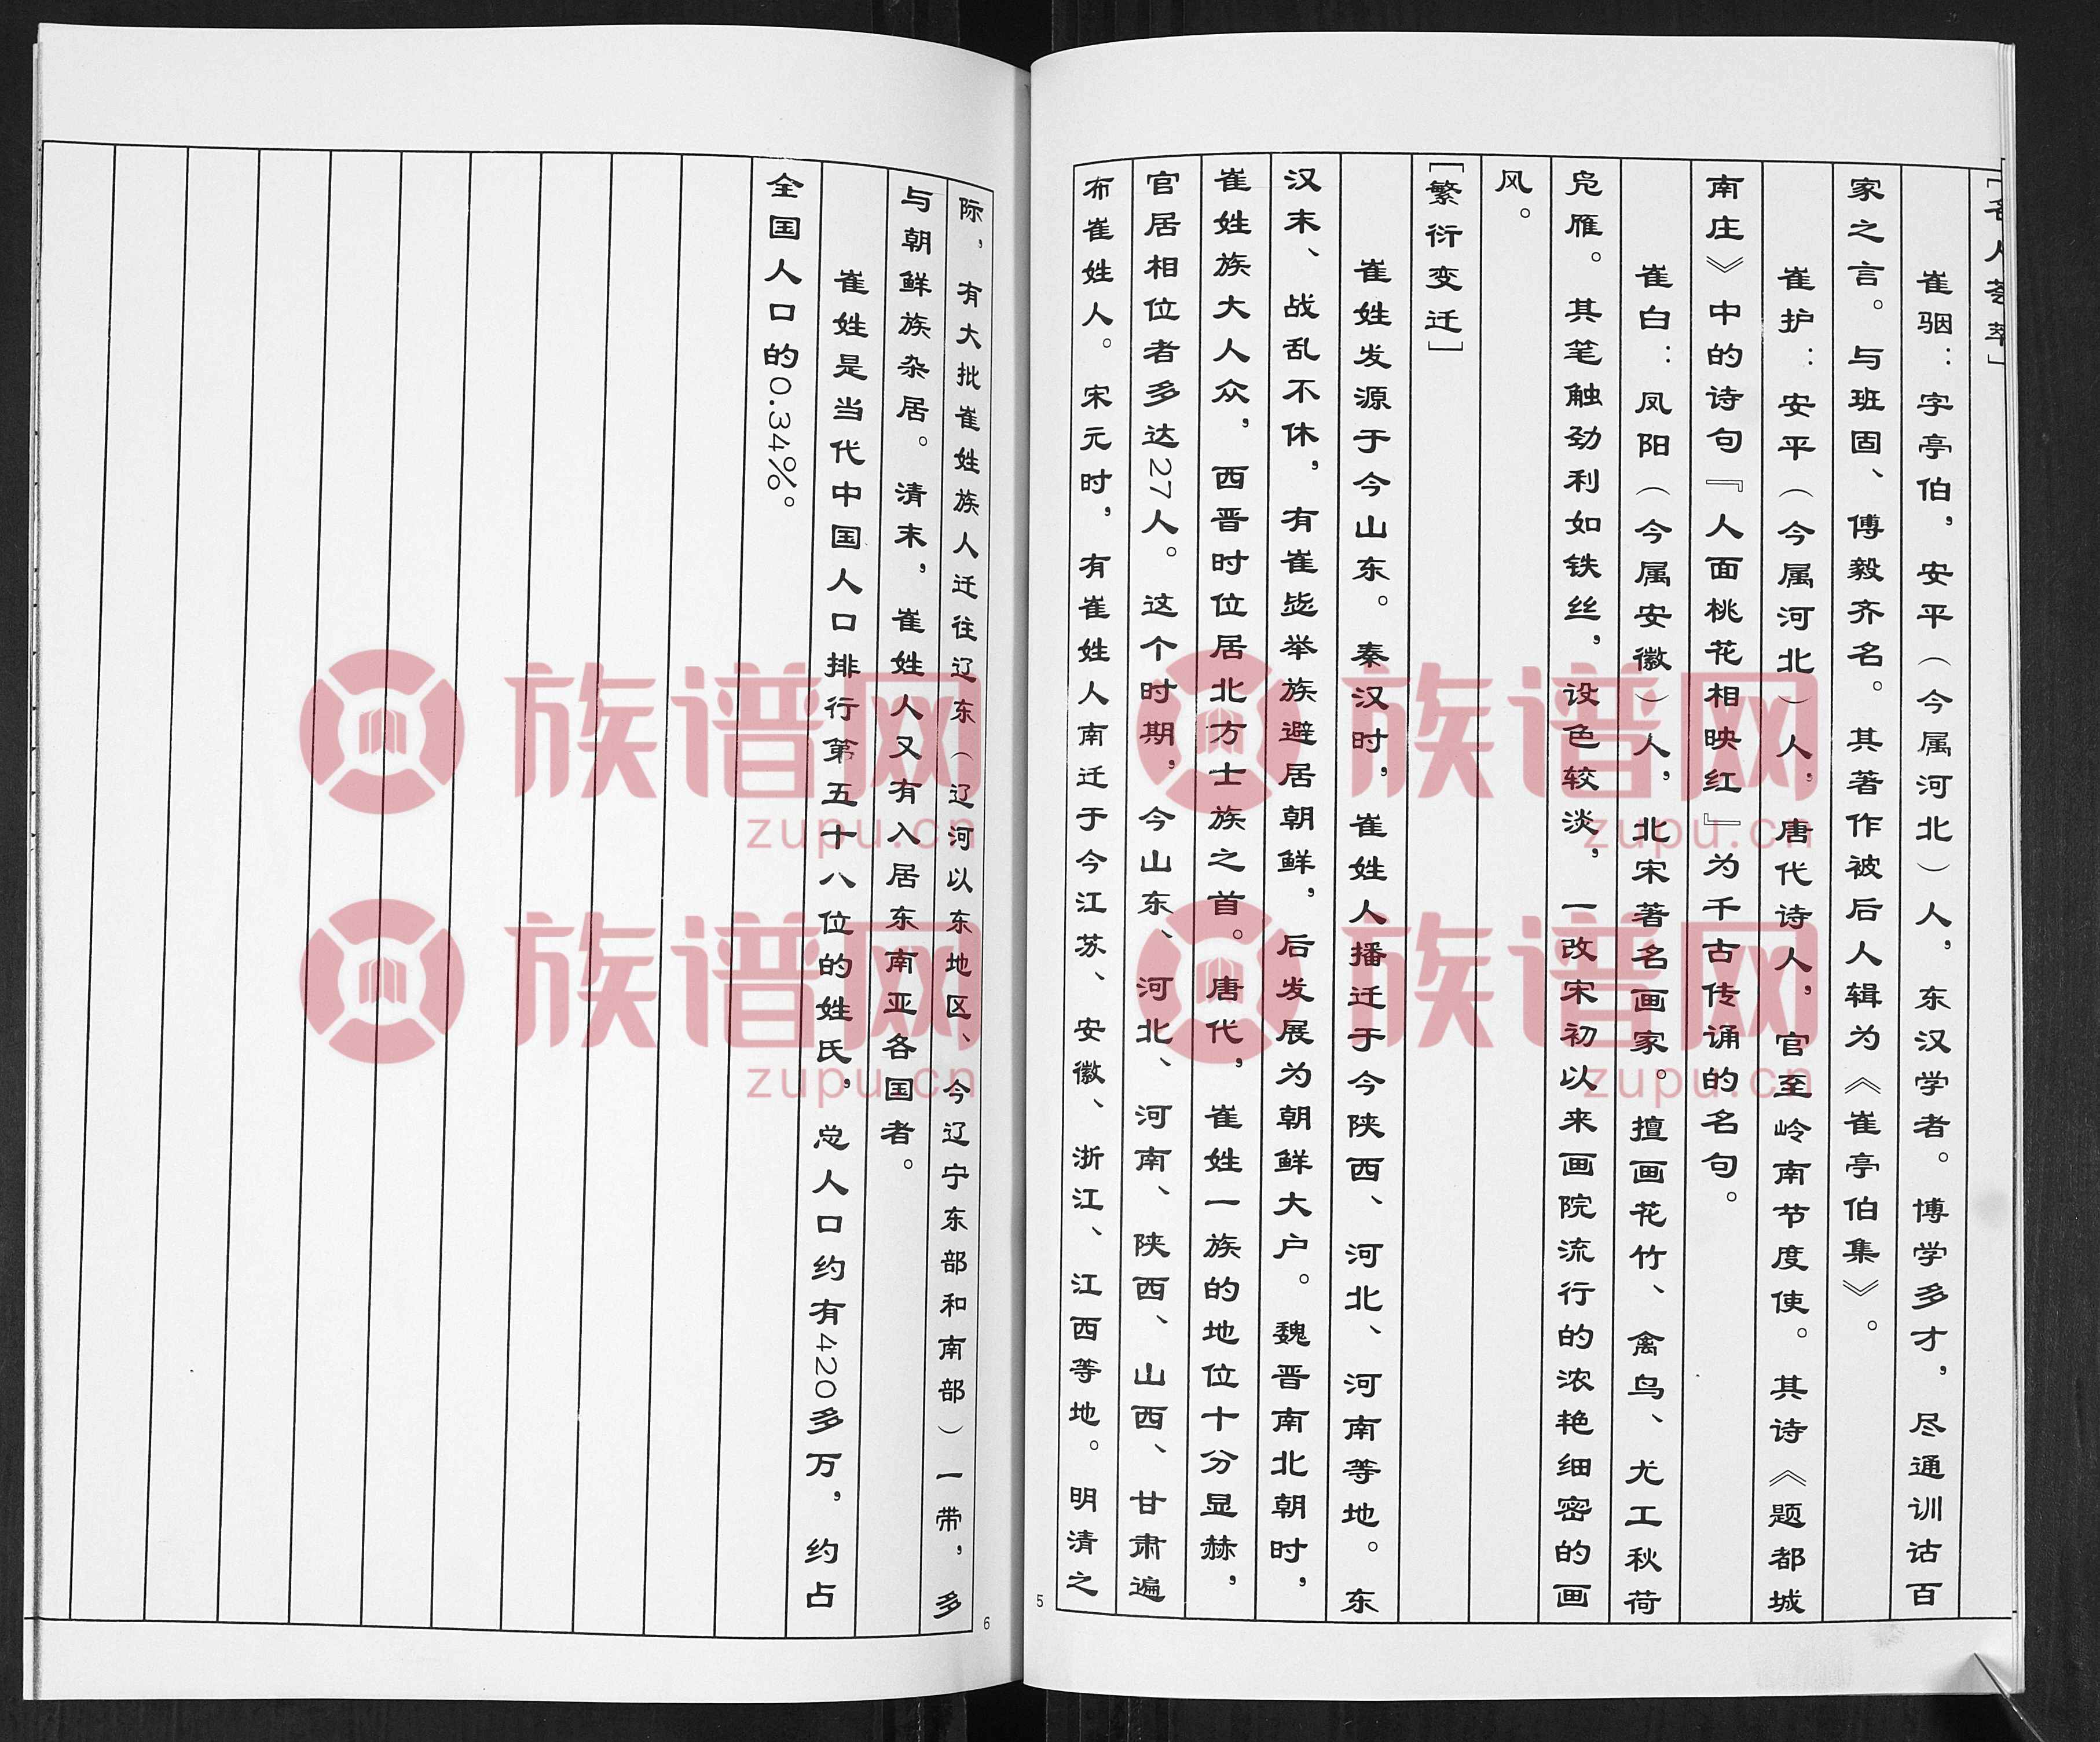 ［名人荟萃］
崔骃：字亭伯，安平（今属河北）人，东汉学者。博学多才，尽通训诂百
家之言。与班固、傅毅齐名。其著作被后人辑为《崔亭伯集》。
崔护：安平（今属河北）人，唐代诗人，官至岭南节度使。其诗《题都城
南庄》中的诗句『人面桃花相映红』为千古传诵的名句。
崔白：凤阳（今属安徽）人，北宋著名画家。擅画花竹、禽鸟、尤工秋荷
凫雁。其笔触劲利如铁丝，设色较淡，一改宋初以来画院流行的浓艳细密的画
风。
［繁衍变迁］
崔姓发源于今山东。秦汉时，崔姓人播迁于今陕西、河北、河南等地。东
汉末、战乱不休，有崔毖举族避居朝鲜，后发展为朝鲜大户。魏晋南北朝时，
崔姓族大人众，西晋时位居北方士族之首。唐代，崔姓一族的地位十分显赫，
官居相位者多达27人。这个时期，今山东、河北、河南、陕西、山西、甘肃遍
布崔姓人。宋元时，有崔姓人南迁于今江苏、安徽、浙江、江西等地。明清之
5
际，有大批崔姓族人迁往辽东（辽河以东地区、今辽宁东部和南部）一带，多
与朝鲜族杂居。清末，崔姓人又有入居东南亚各国者。
崔姓是当代中国人口排行第五十八位的姓氏，总人口约有420多万，约占
全国人口的0.34%。
6
族谱网
zupu.cn
族谱网
zupu.cn
族谱网
zupu.cn
族谱网
zupu.cn